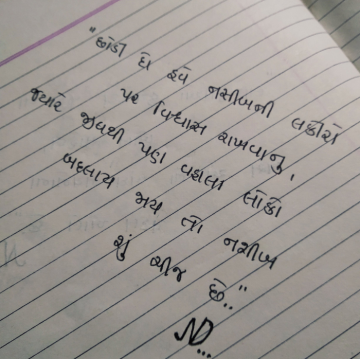 "છોડી દો હવે નસીબની લકીરો
પર વિશ્વાસ રાખવાનું,
જ્યારે જીવથી પણ વહાલા લોકો
બદલાય જાય તો નસીબ
શું ચીજ છે.."
ND...